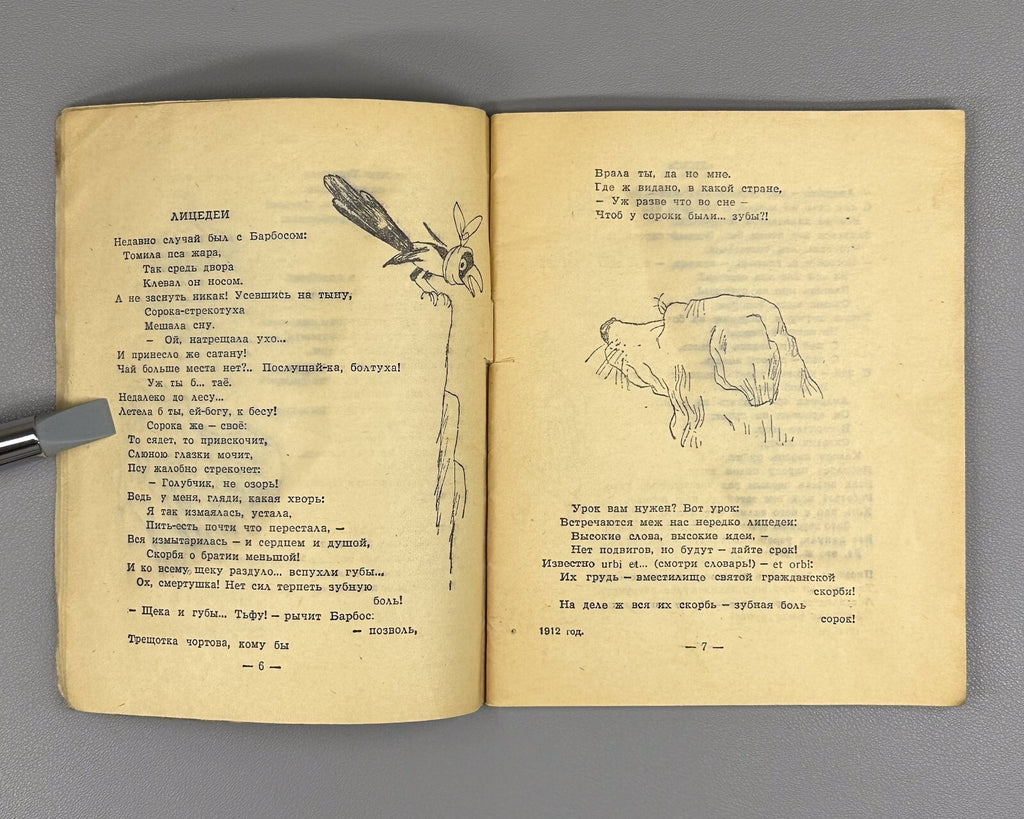 ЛИЦЕДЕИ
Недавно случай был с Барбосом:
Томила пса жара,
Так средь двора
Клевал он носом.
А не заснуть никак! Усевшись на тыну,
Сорока-стрекотуха
Мешала сну.
— Ой, натрещала ухо...
И принесло же сатану!
Чай больше места нет?.. Послушай-ка, болтуха!
Уж ты б... таё.
Недалеко до лесу...
Летела б ты, ей-богу, к бесу!
Сорока же — своё:
То сядет, то привскочит,
Слюною глазки мочит,
Псу жалобно стрекочет:
— Голубчик, не озорь!
Ведь у меня, гляди, какая хворь:
Я так измаялась, устала,
Пить-есть почти что перестала, —
Вся измытарилась — и сердцем и душой,
Скорбя о братии меньшой!
И ко всему щеку раздуло... вспухли губы...
Ох, смертушка! Нет сил терпеть зубную
боль!
— Щека и губы... Тьфу! — рычит Барбос:
— позволь,
Трещотка чортова, кому бы
— 6 —
Врала ты, да не мне.
Где ж видано, в какой стране,
— Уж разве что во сне —
Чтоб у сороки были... зубы?!
Урок вам нужен? Вот урок:
Встречаются меж нас нередко лицедеи:
Высокие слова, высокие идеи, —
Нет подвигов, но будут — дайте срок!
Известно urbi et... (смотри словарь!) — et orbi:
Их грудь — вместилище святой гражданской
скорби!
На деле ж вся их скорбь — зубная боль
сорок!
1912 год.
— 7 —